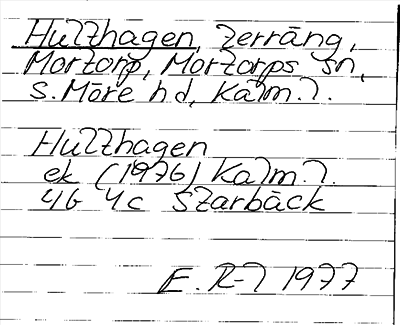 Hulthagen, terräng,
Mortorp, Mortorps sn,
S. Möre hd, Kalm. l.
Hulthagen
ek (1976) Kalm. l.
4G 4c Starbäck
E. R-l 1977